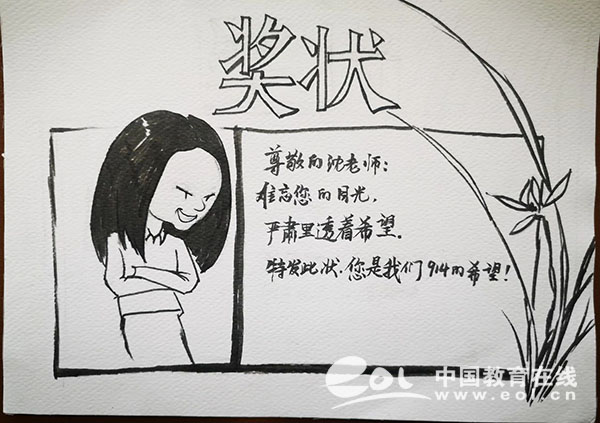 奖状
尊敬的沈老师:
难忘您的目光,
严肃里透着希望.
特发此状.您是我们914的希望!
eol 中国教育在线
www.eol.cn